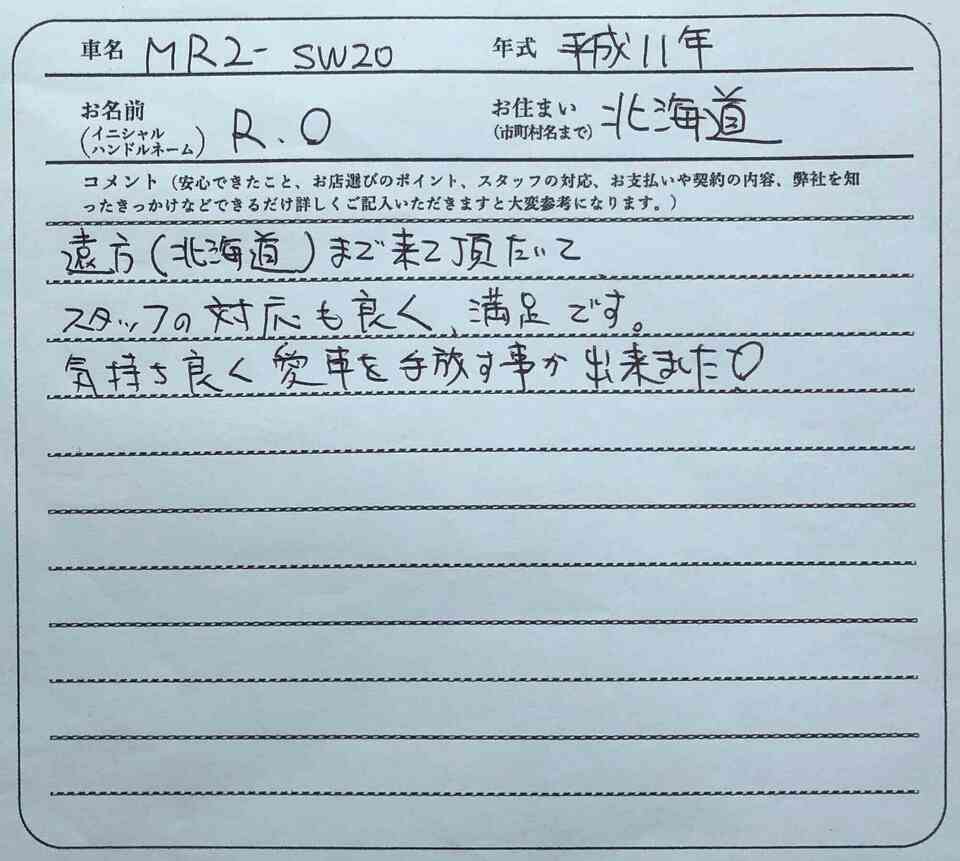 車名 MR2- SW20 年式 平成11年
お名前 (イニシャル ハンドルネーム) R.O お住まい (市町村名まで) 北海道
コメント（安心できたこと、お店選びのポイント、スタッフの対応、お支払いや契約の内容、弊社を知
ったきっかけなどできるだけ詳しくご記入いただきますと大変参考になります。）
遠方(北海道)まで来て頂だいて
スタッフの対応も良く、満足です。
気持ち良く愛車を手放す事か出来ました♡